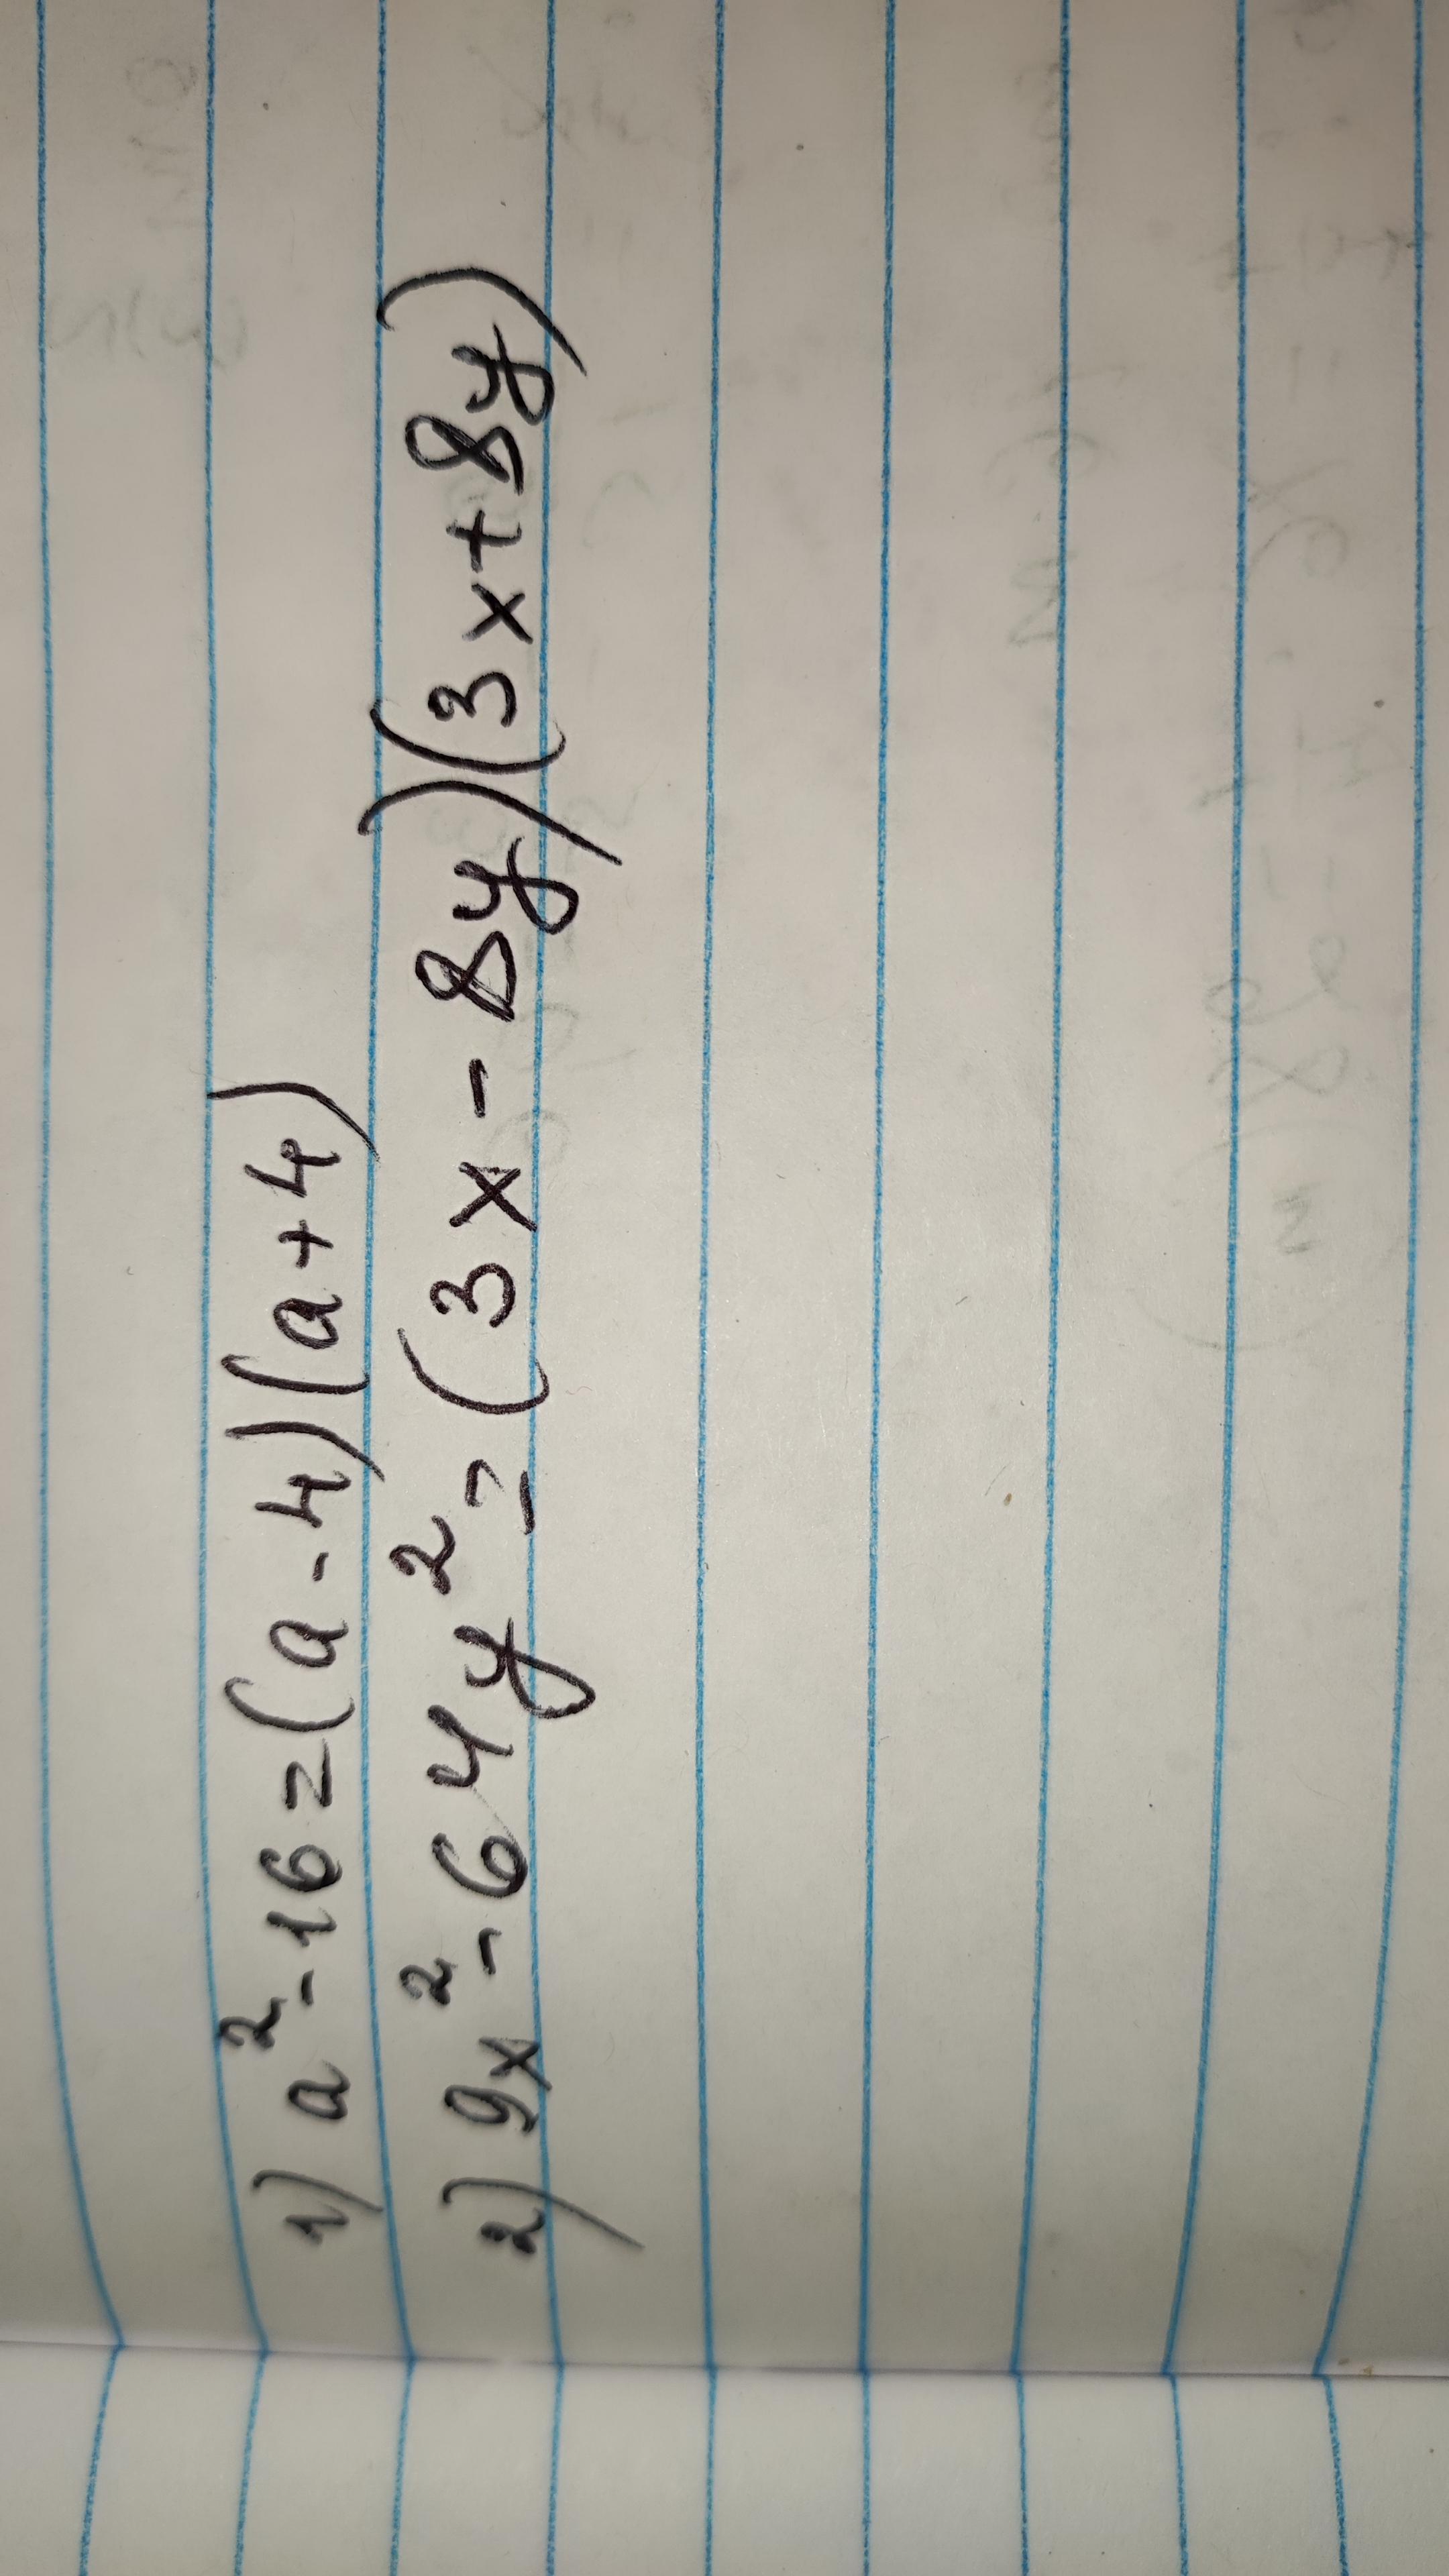 1) a²-16=(a-4)(a+4)
2) 9x²-64y²=(3x-8y)(3x+8y)